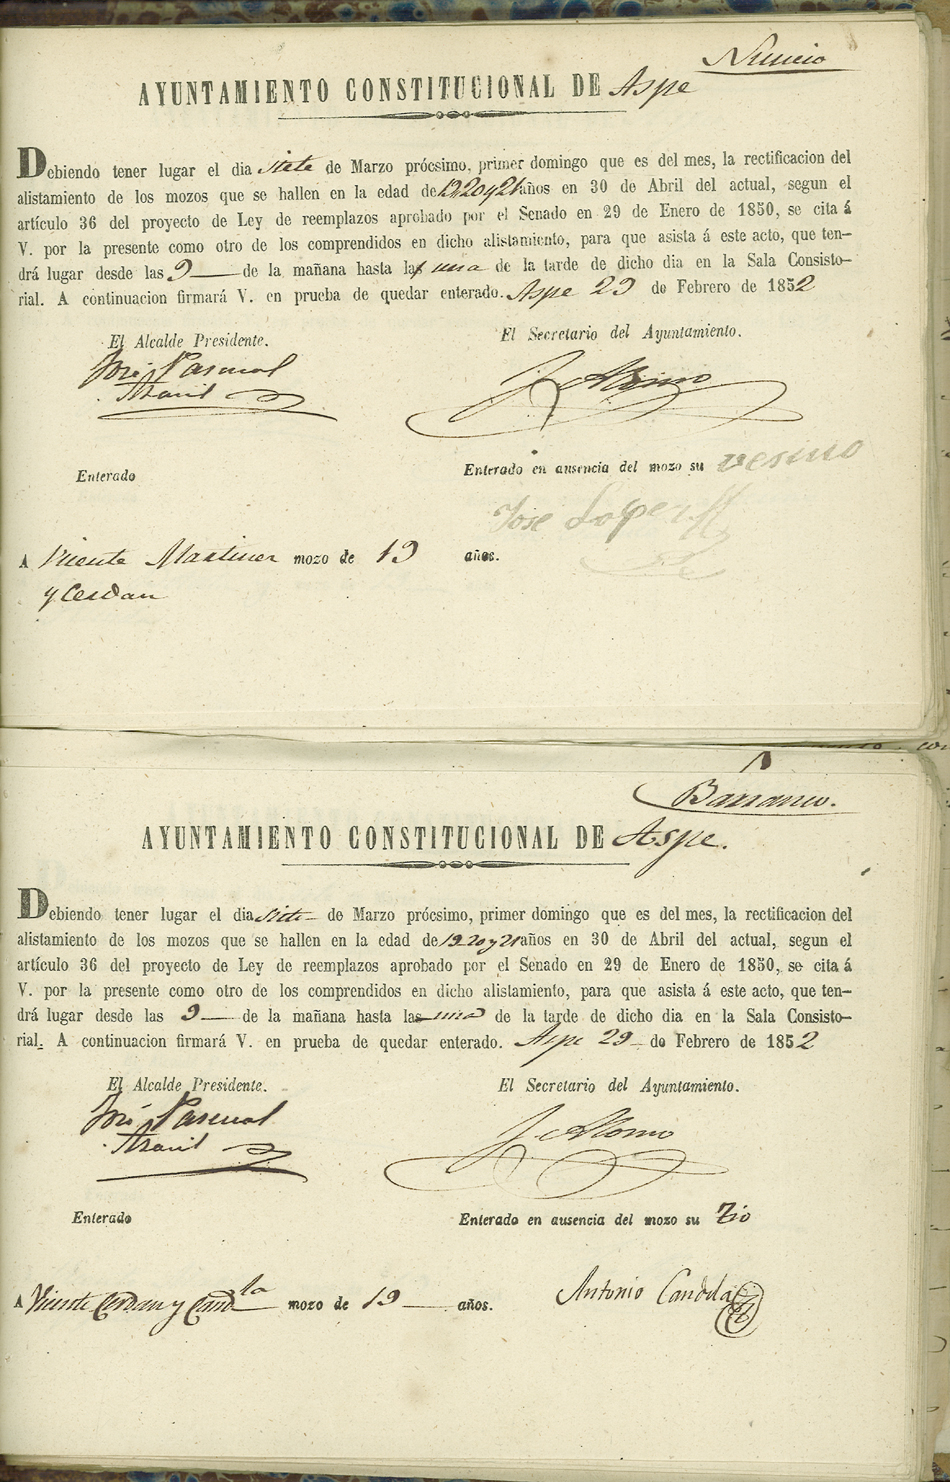 Nuncio
AYUNTAMIENTO CONSTITUCIONAL DE Aspe
Debiendo tener lugar el dia siete de Marzo prócsimo, primer domingo que es del mes, la rectificacion del
alistamiento de los mozos que se hallen en la edad de 19 20 y 21 años en 30 de Abril del actual, segun el
artículo 36 del proyecto de Ley de reemplazos aprobado por el Senado en 29 de Enero de 1850, se cita á
V. por la presente como otro de los comprendidos en dicho alistamiento, para que asista á este acto, que ten-
drá lugar desde las 9 de la mañana hasta la una de la tarde de dicho dia en la Sala Consisto-
rial. A continuacion firmará V. en prueba de quedar enterado. Aspe 29 de Febrero de 1852
El Alcalde Presidente. El Secretario del Ayuntamiento.
José Pascual
Enterado Enterado en ausencia del mozo su vesino
Jose Lopez
A Vicente Martinez mozo de 19 años.
y Cerdan
Barranco.
AYUNTAMIENTO CONSTITUCIONAL DE Aspe.
Debiendo tener lugar el dia siete de Marzo prócsimo, primer domingo que es del mes, la rectificacion del
alistamiento de los mozos que se hallen en la edad de 19 20 y 21 años en 30 de Abril del actual, segun el
artículo 36 del proyecto de Ley de reemplazos aprobado por el Senado en 29 de Enero de 1850, se cita á
V. por la presente como otro de los comprendidos en dicho alistamiento, para que asista á este acto, que ten-
drá lugar desde las 9 de la mañana hasta las una de la tarde de dicho dia en la Sala Consisto-
rial. A continuacion firmará V. en prueba de quedar enterado. Aspe 29 de Febrero de 1852
El Alcalde Presidente. El Secretario del Ayuntamiento.
José Pascual
Enterado Enterado en ausencia del mozo su Tio
A Vicente Cerdan y Candla mozo de 19 años. Antonio Candela